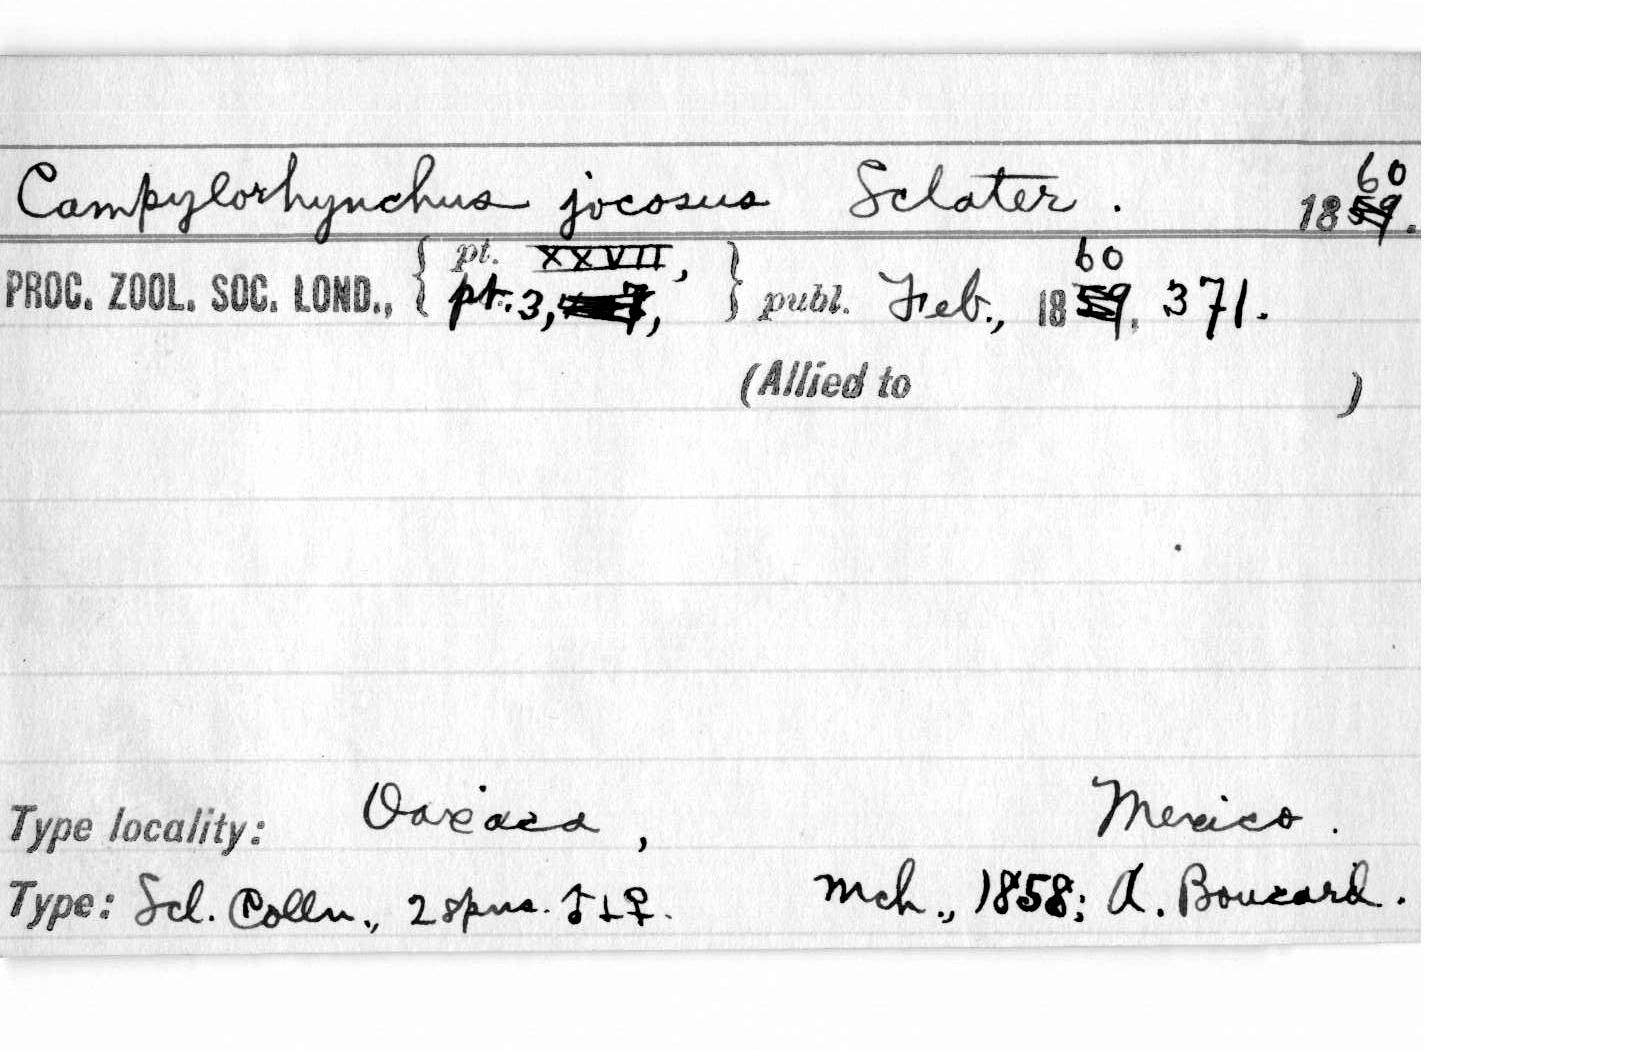 Campylorhynchus jocosus Sclater. 1859. 60
PROC. ZOOL. SOC. LOND., { pt. XXVII, pt. 3, } publ. Feb., 1859, 60 371.
(Allied to )
Type locality: Oaxaca, Mexico.
Type: Scl. Colln., 2 spns. ♂ + ♀. Mch., 1858; A. Boucard.